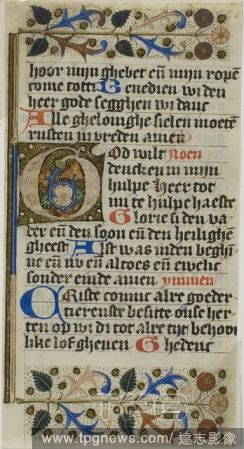 hoor mijn ghebet eñ mijn ropē
come tot ti Benedien wi den
heer gode segghen wi danc
Alle ghelouighe sielen moetē
rusten in vreden amen
God wilt Noen
dencken in mijn
hulpe Heer tot
mi te hulpe haeste
Glorie si den va
der eñ den soon eñ den heilighē
gheest Alst was inden beghi
ne eñ nv eñ altoos eñ ewelic
sonder einde amen ymmen
Criste comic alre goeder
tierenste besitte onse her
ten op wi di tot alre tijt behou
like lof gheuen Ghedenc
www.tpgnews.com/達志影像